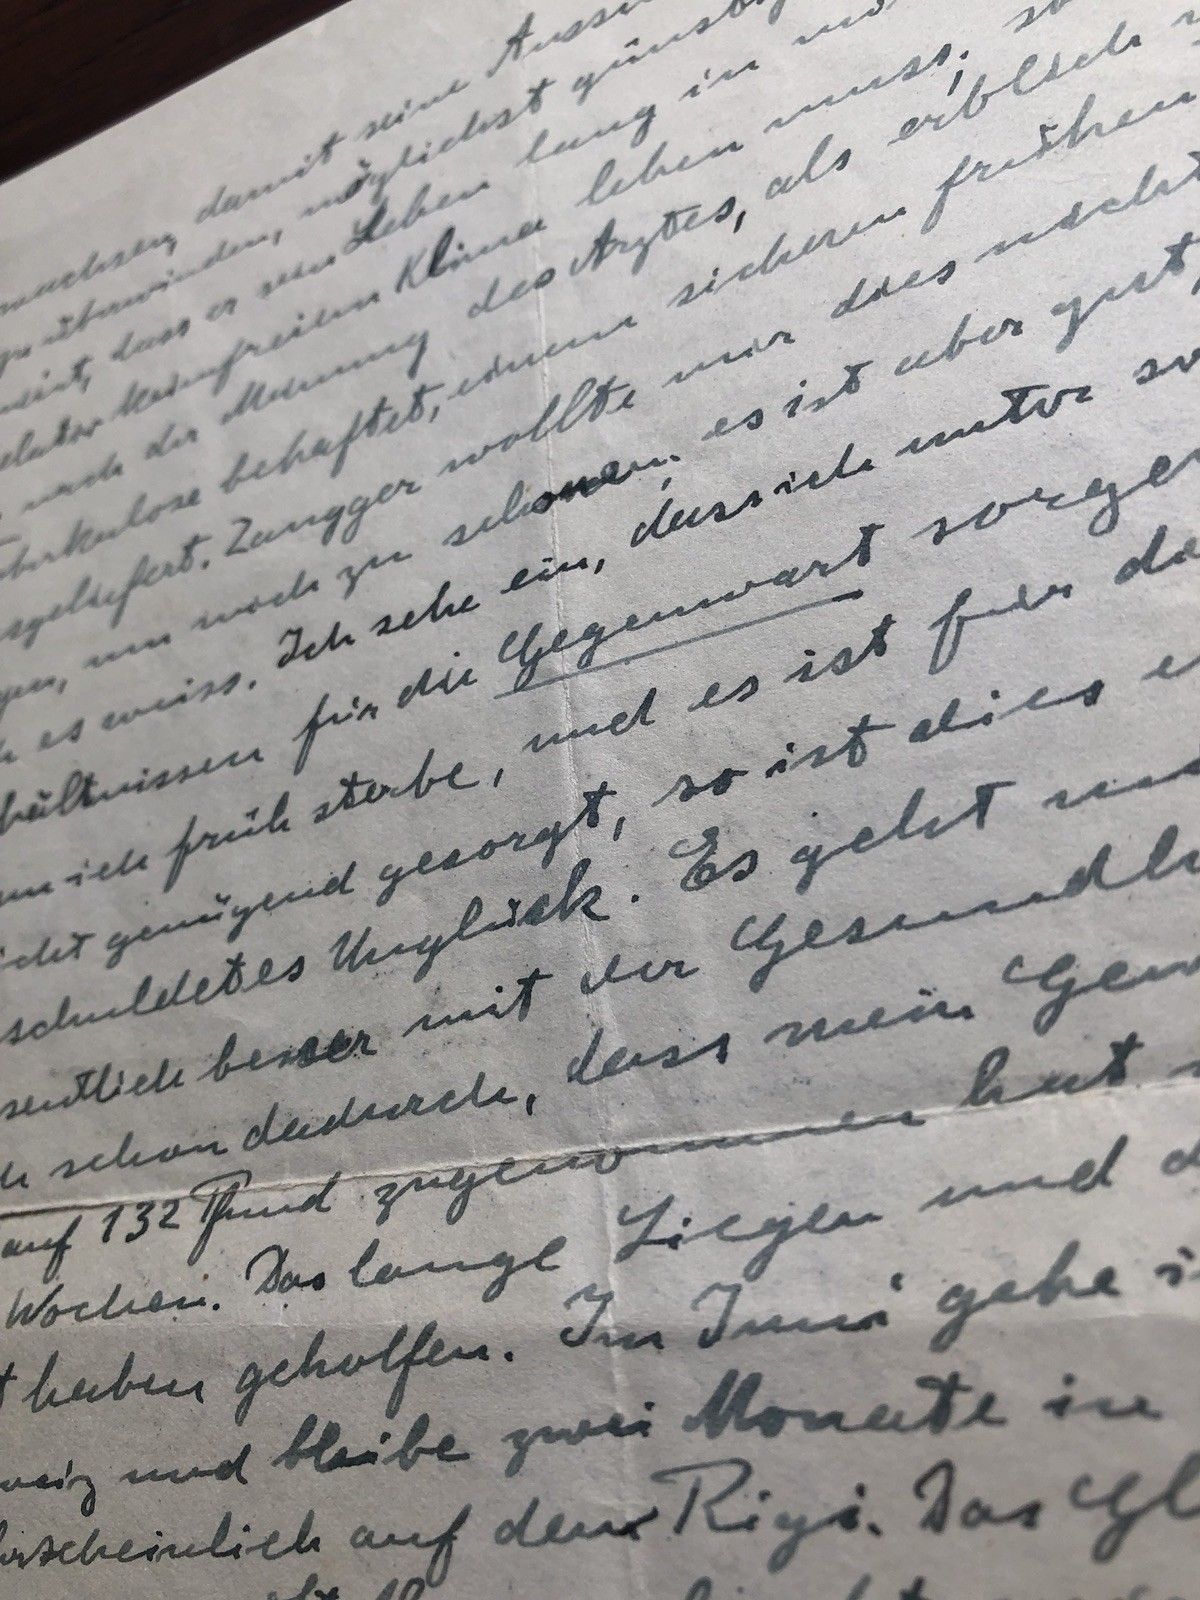 damit seine
überwinden, möglichst günstig
dass er sein Leben lang in
keimfreiem Klima leben muss, so
nach der Meinung des Arztes, als erblich
behaftet, einem sicheren frühen
sgeliefert. Zangger wollte mir dies nicht
um mich zu schonen, es ist aber gut,
h es weiss. Ich sehe ein, dass ich unter so
hältnissen für die Gegenwart sorgen
nn ich früh sterbe, und es ist für
icht genügend gesorgt, so ist dies
schuldetes Unglück. Es geht
sentlich besser mit der Gesundh
h schon dadurch, dass mein Gew
auf 132 Pfund zugenommen hat
Wochen. Das lange Liegen und
t haben geholfen. Im Juni gehe i
weiz und bleibe zwei Monate in
hrscheinlich auf dem Rigi. Das Gl